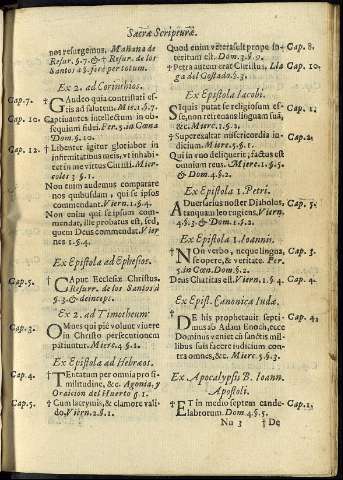 Sacræ Scripturæ.
nos resurgemus. Mañana de
Resur. §.7. & † Resur. de los
Santos à §.1. per totum.
Ex 2. ad Corinthios.
Cap. 7.
GAudeo quia contristati e-
stis ad salutem. Mie.1.§.7.
Cap. 10.
Captiuantes intellectum in ob-
sequium fidei. Fer.5. in Cœna
Dom.§.10.
Cap. 12.
† Libenter igitur gloriabor in
infirmitatibus meis, vt inhabi-
tet in me virtus Christi. Mier-
coles 3 §.1.
Non enim audemus comparare
nos quibusdam, qui se ipsos
commendant. Viern.1.§.4.
Non enim qui se ipsum com-
mendat, ille probatus est, sed,
quem Deus commendat. Vier
nes 1.§.4.
Ex Epistola ad Ephesios.
Cap. 5.
† CAput Ecclesiæ Christus.
Resurr. de los Santos à
§.3. & deinceps.
Ex 2. ad Timotheum
Cap. 3.
OMnes qui piè volunt viuere
in Christo persecutionem
patiuntur. Mier.4.§.2.
Ex Epistola ad Hebræos.
Cap. 4.
† TEntatum per omnia pro si-
militudine, &c. Agonia, y
Oracion del Huerto §.1.
Cap. 5.
† Cum lacrymis, & clamore vali
do. Viern.2.§.1.
Quod enim veterascit prope in-
teritum est. Dom.3.§.9.
Cap. 8.
† Petra autem erat Christus, Lla
ga del Costado.§.3.
Cap. 10.
Ex Epistola Iacobi.
SIquis putat se religiosum es-
se, non refrenans linguam suā,
&c. Mierc.1.§.2.
Cap. 1.
† Superexaltat misericordia iu-
dicium. Mierc.1.§.1.
Cap. 2.
Qui in vno deliquerit; factus est
omnium reus. Mierc.1.§.5.
& Dom.4.§.2.
Ex Epistola 1. Petri.
ADuersarius noster Diabolus,
tanquam leo rugiens, Viern.
4.§.3. & Dom.1.§.2.
Cap. 5.
Ex Epistola 1. Ioannis.
† NOn verbo, neque lingua,
sed opere, & veritate. Fer.
5. in Cœn. Dom.§.2.
Cap. 3.
Deus Charitas est. Viern.1.§.1.
Cap. 4.
Ex Epist. Canonica Iudæ.
† DE his prophetauit septi-
mus ab Adam Enoch, ecce
Dominus veniet in sanctis mi-
libus suis facere iudicium con-
tra omnes, &c. Mier.5.§.3.
Ex Apocalypsis B. Ioann.
Apostoli.
† ET in medio septem cande-
labrorum. Dom.4.§.5.
Cap. 1.
Nn 3
† De